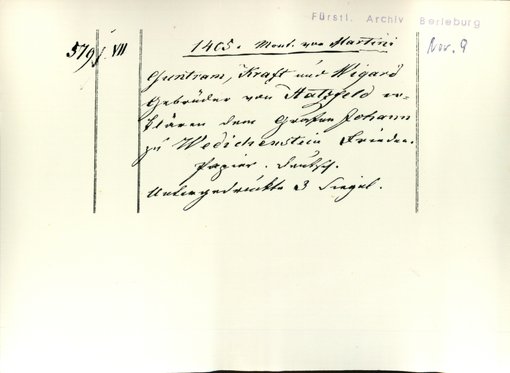 Fürstl. Archiv Berleburg
579 f. VII
1405. Mont. vor Martini
Nov. 9
Guntram, Kraft und Wigard
Gebrüder von Hatzfeld er=
klären dem Grafen Johann
zu Wedichenstein Frieden.
Papier. Deutsch.
Untergedrückte 3 Siegel.